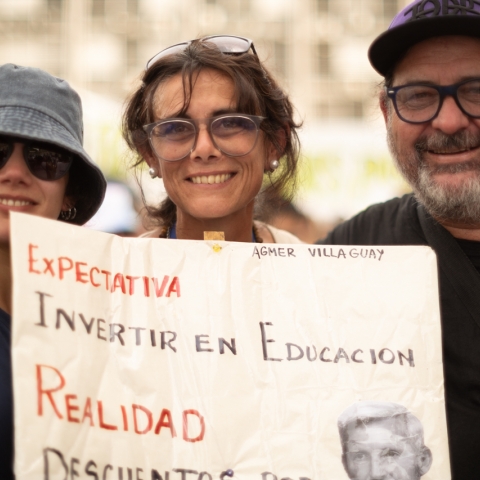 AGMER VILLAGUAY
EXPECTATIVA
INVERTIR EN EDUCACION
REALIDAD
DESCUENTOS POR